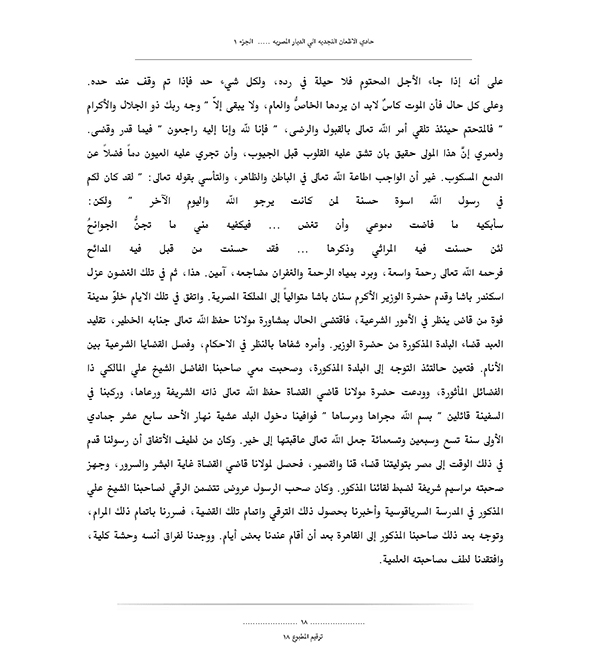 حادي الاظعان النجديه الي الديار المصريه ..... الجزء ١
على أنه إذا جاء الأجل المحتوم فلا حيلة في رده، ولكل شيء حد فإذا تم وقف عند حده.
وعلى كل حال فأن الموت كاسٌ لابد ان يردها الخاصُّ والعام، ولا يبقى إلاّ " وجه ربك ذو الجلال والأكرام
" فالمتحتم حينئذ تلقي أمر الله تعالى بالقبول والرضى، " فإنا لله وإنا إليه راجعون " فيما قدر وقضى.
ولعمري إنَّ هذا المولى حقيق بان تشق عليه القلوب قبل الجيوب، وأن تجري عليه العيون دماً فضلاً عن
الدمع المسكوب. غير أن الواجب اطاعة الله تعالى في الباطن والظاهر، والتأسي بقوله تعالى: " لقد كان لكم
في رسول الله اسوة حسنة لمن كانت يرجو الله واليوم الآخر " ولكن:
سأبكيه ما فاضت دموعي وأن تغض ... فيكفيه مني ما تجنُّ الجوانحُ
لئن حسنت فيه المراثي وذكرها ... فقد حسنت من قبل فيه المدائح
فرحمه الله تعالى رحمة واسعة، وبرد بمياه الرحمة والغفران مضاجعه، آمين. هذا، ثم في تلك الغضون عزل
اسكندر باشا وقدم حضرة الوزير الأكرم سنان باشا متوالياً إلى المملكة المصرية. واتفق في تلك الايام خلوّ مدينة
فوة من قاض ينظر في الأمور الشرعية، فاقتضى الحال بمشاورة مولانا حفظ الله تعالى جنابه الخطير، تقليد
العبد قضاء البلدة المذكورة من حضرة الوزير. وأمره شفاها بالنظر في الاحكام، وفصل القضايا الشرعية بين
الأنام. فتعين حالتئذ التوجه إلى البلدة المذكورة، وصحبت معي صاحبنا الفاضل الشيخ علي المالكي ذا
الفضائل المأثورة، وودعت حضرة مولانا قاضي القضاة حفظ الله تعالى ذاته الشريفة ورعاها، وركبنا في
السفينة قائلين " بسم الله مجراها ومرساها " فوافينا دخول البلد عشية نهار الأحد سابع عشر جمادي
الأولى سنة تسع وسبعين وتسعمائة جعل الله تعالى عاقبتها إلى خير. وكان من لطيف الأتفاق أن رسولنا قدم
في ذلك الوقت إلى مصر بتوليتنا قضاء قنا والقصير، فحصل لمولانا قاضي القضاة غاية البشر والسرور، وجهز
صحبته مراسيم شريفة لضبط لقائنا المذكور. وكان صحب الرسول عروض تتضمن الرقي لصاحبنا الشيخ علي
المذكور في المدرسة السرياقوسية وأخبرنا بحصول ذلك الترقي واتمام تلك القضية، فسررنا باتمام ذلك المرام،
وتوجه بعد ذلك صاحبنا المذكور إلى القاهرة بعد أن أقام عندنا بعض أيام. ووجدنا لفراق أنسه وحشة كلية،
وافتقدنا لطف مصاحبته العلمية.
...................... ١٨ ......................
ترقيم المطبوع ١٨